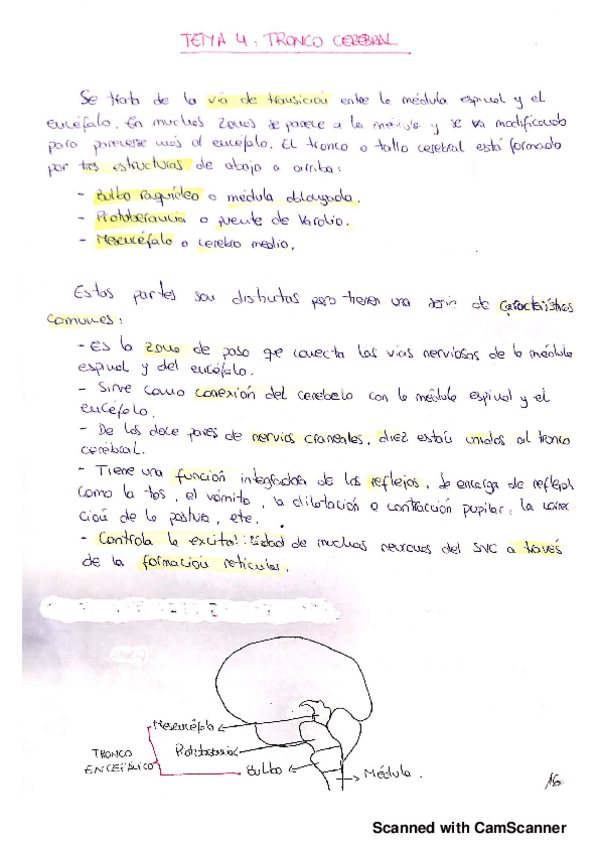 TEMA 4: TRONCO CEREBRAL
Se trata de la vía de transición entre la médula espinal y el
encéfalo. En muchas zonas se parece a la médula y se va modificando
para parecerse más al encéfalo. El tronco o tallo cerebral está formado
por tres estructuras de abajo a arriba:
- Bulbo raquídeo o médula oblongada.
- Protuberancia o puente de Varolio.
- Mesencéfalo o cerebro medio.
Estas partes son distintas pero tienen una serie de características
comunes:
- Es la zona de paso que conecta las vías nerviosas de la médula
espinal y del encéfalo.
- Sirve como conexión del cerebelo con la médula espinal y el
encéfalo.
- De los doce pares de nervios craneales, diez están unidos al tronco
cerebral.
- Tiene una función integradora de los reflejos, se encarga de reflejos
como la tos, el vómito, la dilatación o contracción pupilar, la correc
ción de la postura, etc.
- Controla la excitabilidad de muchas neuronas del SNC a través
de la formación reticular.
Mesencéfalo
TRONCO
ENCEFÁLICO
Protuberancia
Bulbo
Médula.
Scanned with CamScanner